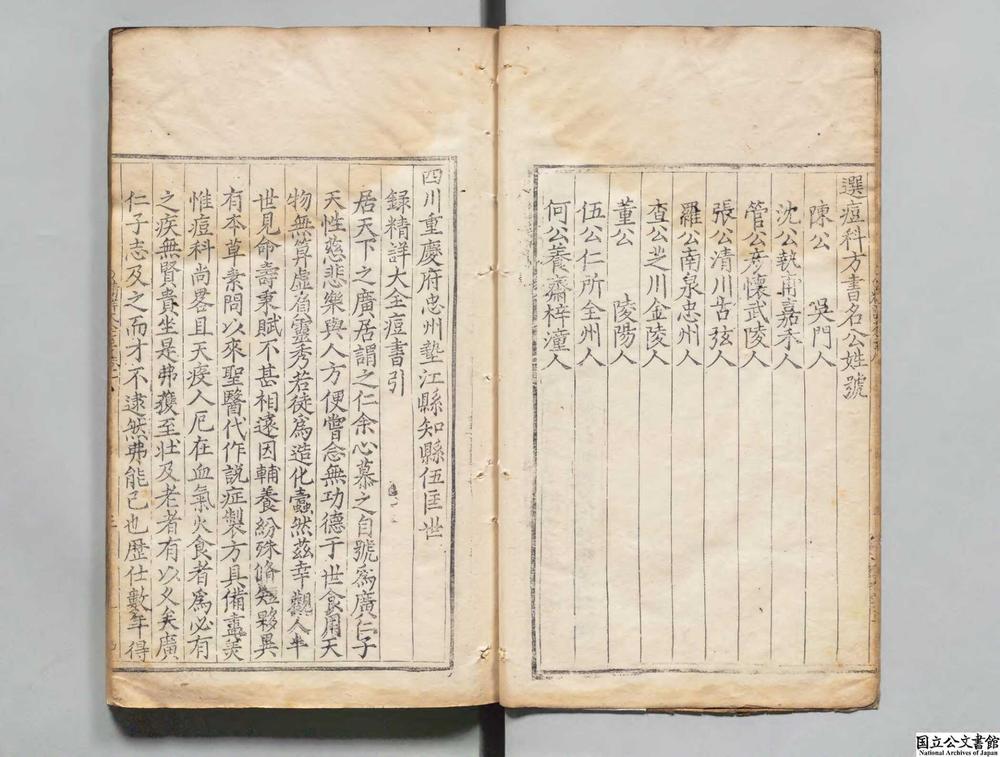 選痘科方書名公姓號
陳公 吳門人
沈公執甫嘉禾人
管公彦懷武陵人
張公清川古弦人
羅公南泉忠州人
查公芝川金陵人
董公 陵陽人
伍公仁所全州人
何公養齋梓潼人
四川重慶府忠州墊江縣知縣伍匡世
録精詳大全痘書引
居天下之廣居謂之仁余心慕之自號為廣仁子
天性慈悲樂與人方便嘗念無功德于世食用天
物無算虛負靈秀若徒為造化蠹然兹幸觀人半
世見命壽秉賦不甚相遠因輔養紛殊脩短夥異
有本草素問以來聖醫代作説症製方具備盡美
惟痘科尚畧且天疫人厄在血氣火食者為必有
之疾無賢貴坐是弗獲至壯及老者有以久矣廣
仁子志及之而才不逮然弗能已也歴仕數年得
国立公文書館
National Archives of Japan